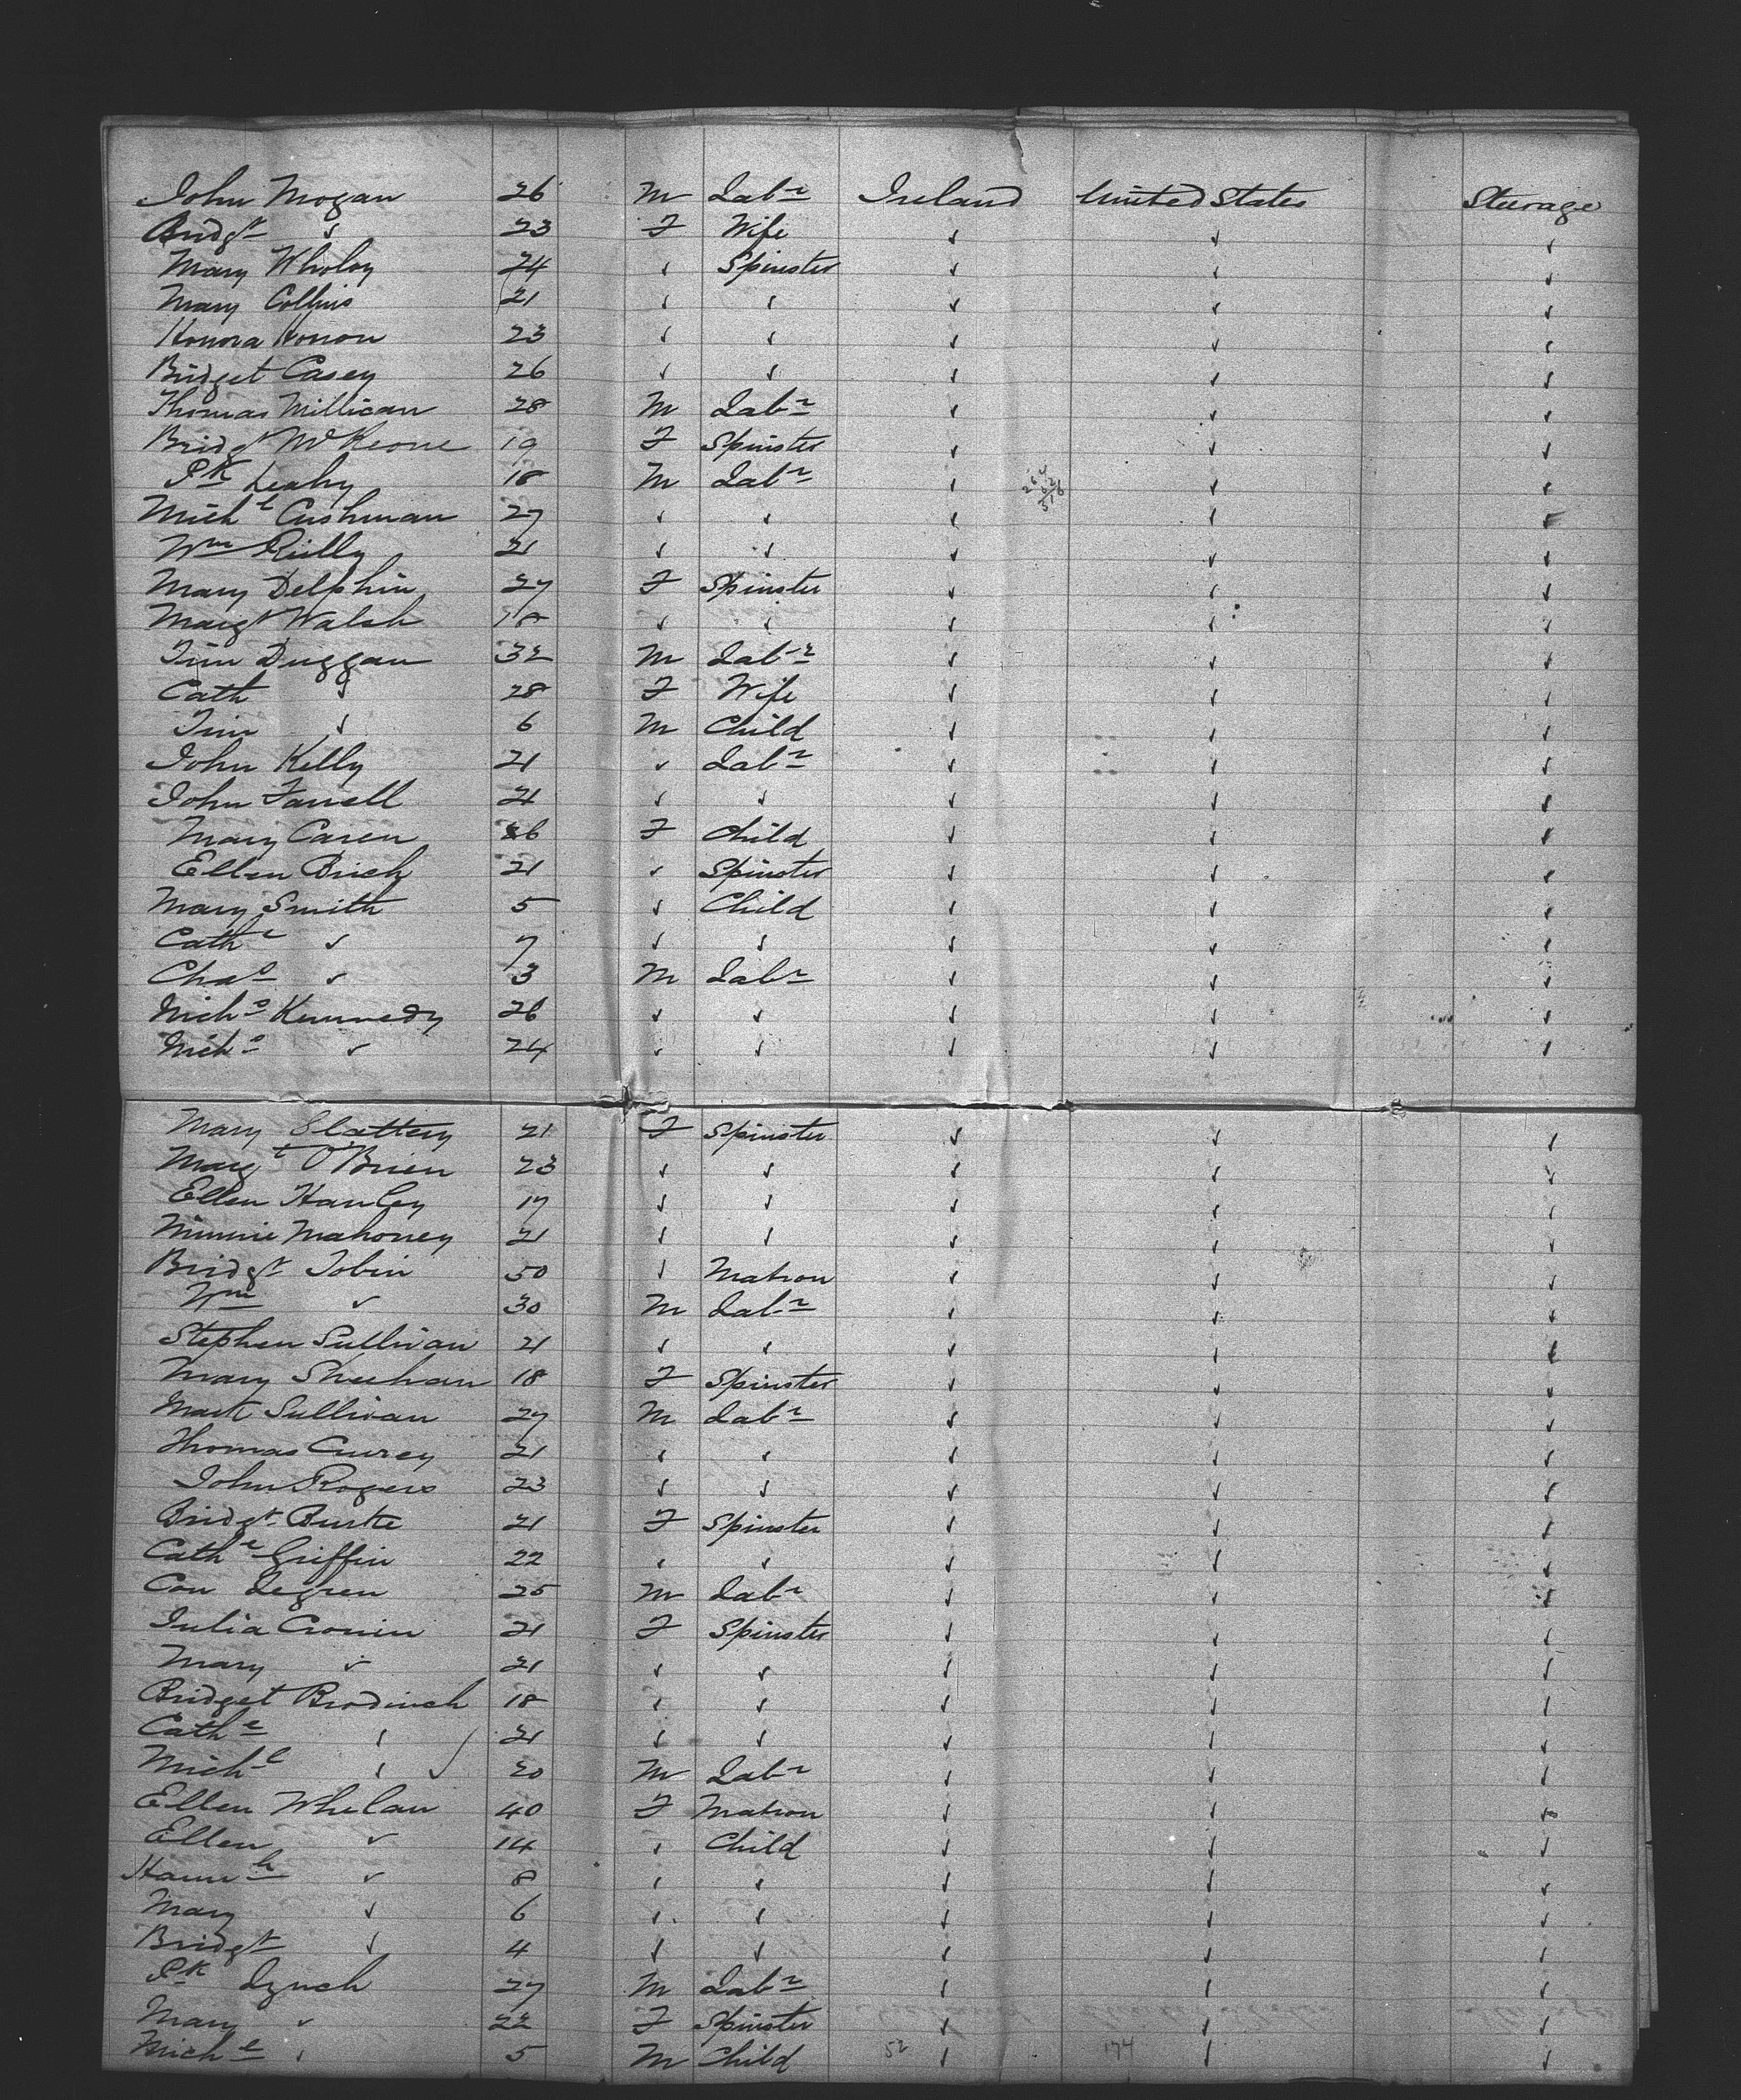 John Mogan 26 M Labr Ireland United States Steerage
Bridgt " 23 F Wife " " "
Mary Wholoy 24 " Spinster " " "
Mary Collins 21 " " " " "
Honora Honon 23 " " " " "
Bridget Casey 26 " " " " "
Thomas Millican 28 M Labr " " "
Bridgt McKeone 19 F Spinster " " "
Pk Leahy 18 M Labr " " "
Michl Cushman 27 " " " " "
Wm Reilly 21 " " " " "
Mary Delphin 27 F Spinster " " "
Margt Walsh 18 " " " " "
Tim Duggan 32 M Labr " " "
Cath " 28 F Wife " " "
Tim " 6 M Child " " "
John Kelly 21 " Labr " " "
John Farrell 21 " " " " "
Mary Caren 6 F Child " " "
Ellen Brick 21 " Spinster " " "
Mary Smith 5 " Child " " "
Cathe " 7 " " " " "
Chas " 3 M Labr " " "
Michs Kennedy 26 " " " " "
Michs " 24 " " " " "
Mary Slattery 21 F Spinster " " "
Margt O'Brien 23 " " " " "
Ellen Hanley 17 " " " " "
Minnie Mahoney 21 " " " " "
Bridgt Tobin 50 " Matron " " "
Wm " 30 M Labr " " "
Stephen Sullivan 21 " " " " "
Mary Sheehan 18 F Spinster " " "
Mark Sullivan 27 M Labr " " "
Thomas Currey 21 " " " " "
John Rogers 23 " " " " "
Bridgt Burke 21 F Spinster " " "
Cathe Griffin 22 " " " " "
Con Degren 25 M Labr " " "
Julia Cronin 21 F Spinster " " "
Mary " 21 " " " " "
Bridget Brodinck 18 " " " " "
Cathe " 21 " " " " "
Michl " 20 M Labr " " "
Ellen Whelan 40 F Matron " " "
Ellen " 14 " Child " " "
Hannh " 8 " " " " "
Mary " 6 " " " " "
Bridgt " 4 " " " " "
Pk Lynch 27 M Labr " " "
Mary " 22 F Spinster " " "
Michl " 5 M Child 52 " 174 " "